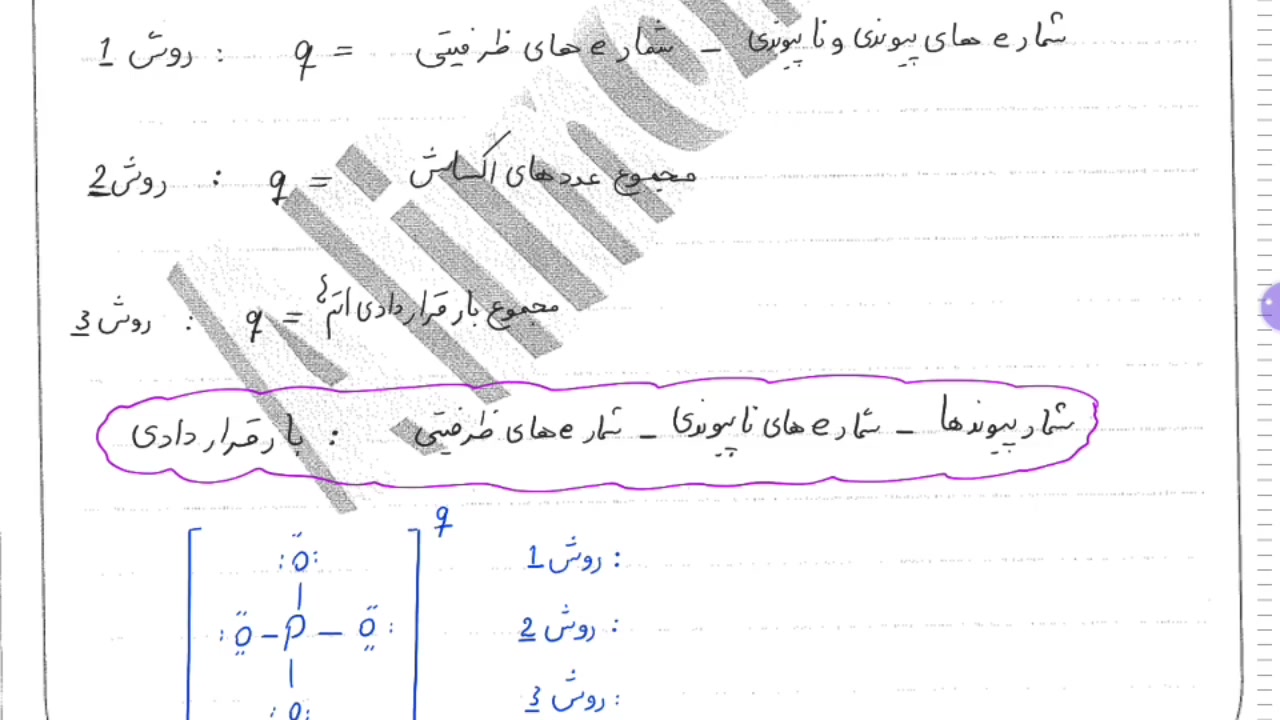 روش 1 : q = شمار e های ظرفیتی - شمار e های پیوندی و ناپیوندی
روش 2 : q = مجموع عددهای اکسایش
روش 3 : q = مجموع بار قراردادی اتم‌ها
بار قراردادی : شمار e های ظرفیتی - شمار e های ناپیوندی - شمار پیوندها
q
:Ö: روش 1 :
:Ö - P - Ö: روش 2 :
:O: روش 3 :